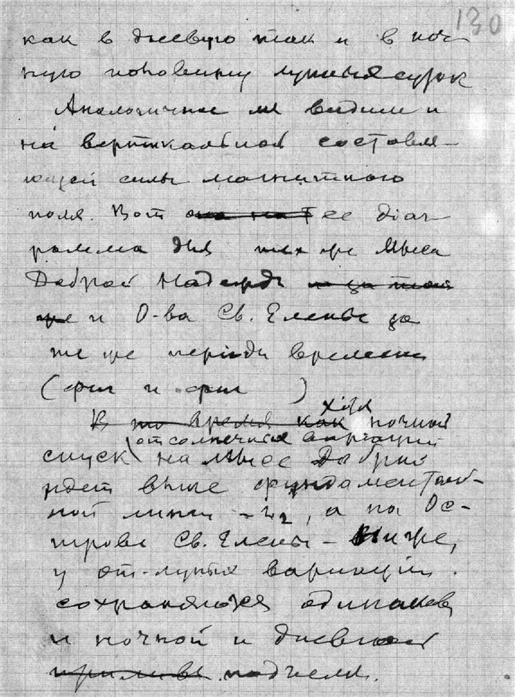 130
как в дневную так и в ноч-
ную половину лунных суток
Аналогичное мы видим и
на вертикальной составля-
ющей силы магнитного
поля. Вот ее diаг-
рамма для тех же Мыса
Доброй Надежды
же и О-ва Св. Елены за
те же періоды времени
(фиг и фиг )
В то время как хотя ночной
от солнечных вариаций
спуск на Мысе Добр.
идет выше фундаменталь-
ной линии , а на Ос-
трове Св. Елены - Ниже,
у от-лунных вариаций
сохраняются одинаков
и ночной и дневной
приливы подъемы.